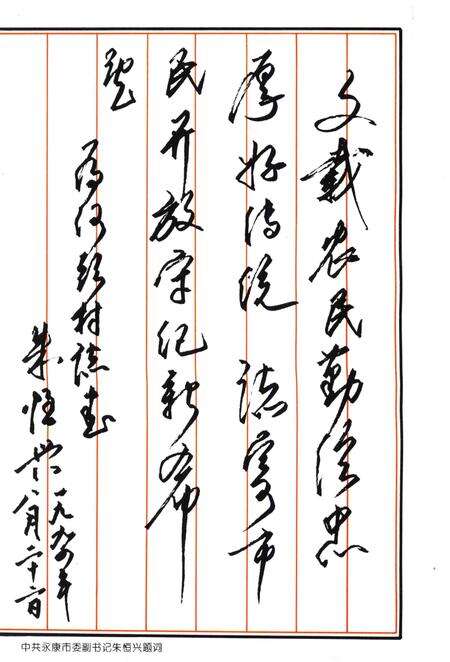 文载农民勤俭忠
厚好传统 誌写市
民开放守纪新希
望
为河头村誌书
朱恒兴
一九九四年
八月二十日
中共永康市委副书记朱恒兴题词